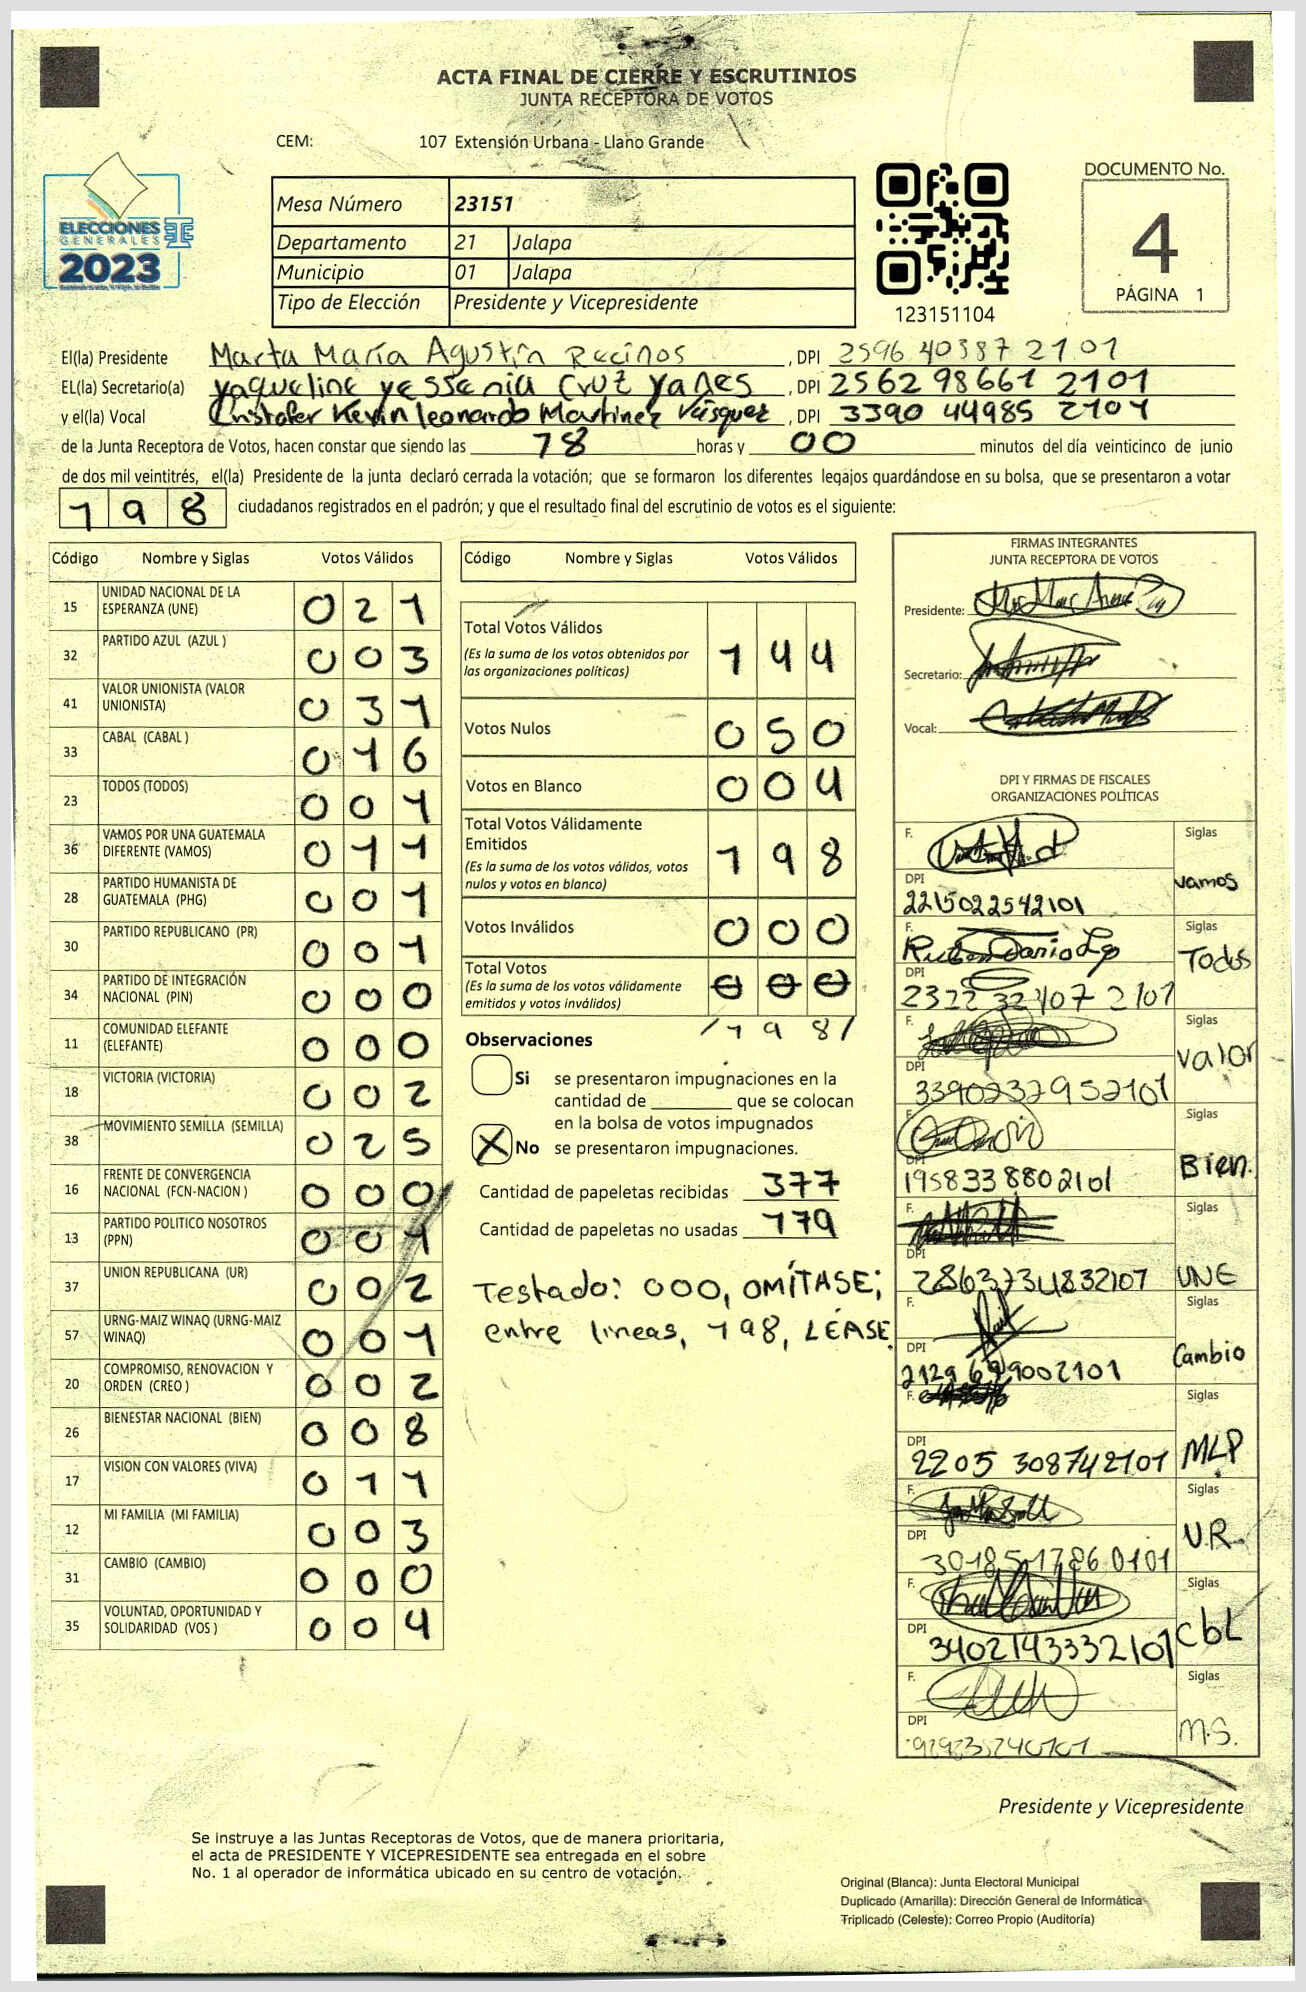 ACTA FINAL DE CIERRE Y ESCRUTINIOS
JUNTA RECEPTORA DE VOTOS
CEM: 107 Extensión Urbana - Llano Grande
ELECCIONES
GENERALES
2023
Mesa Número 23151
Departamento 21 Jalapa
Municipio 01 Jalapa
Tipo de Elección Presidente y Vicepresidente
123151104
DOCUMENTO No.
4
PÁGINA 1
El(la) Presidente Marta María Agustín Recinos, DPI 2596 40387 2101
EL(la) Secretario(a) yaqueline yessenia Cruz yanes, DPI 2562 98661 2101
y el(la) Vocal Cristofer Kevin leonardo Martinez Vásquez, DPI 3390 44985 2101
de la Junta Receptora de Votos, hacen constar que siendo las 18 horas y 00 minutos del día veinticinco de junio
de dos mil veintitrés, el(la) Presidente de la junta declaró cerrada la votación; que se formaron los diferentes legajos guardándose en su bolsa, que se presentaron a votar
198 ciudadanos registrados en el padrón; y que el resultado final del escrutinio de votos es el siguiente:
Código Nombre y Siglas Votos Válidos
15 UNIDAD NACIONAL DE LA ESPERANZA (UNE) 021
32 PARTIDO AZUL (AZUL ) 003
41 VALOR UNIONISTA (VALOR UNIONISTA) 031
33 CABAL (CABAL ) 016
23 TODOS (TODOS) 001
36 VAMOS POR UNA GUATEMALA DIFERENTE (VAMOS) 011
28 PARTIDO HUMANISTA DE GUATEMALA (PHG) 001
30 PARTIDO REPUBLICANO (PR) 001
34 PARTIDO DE INTEGRACIÓN NACIONAL (PIN) 000
11 COMUNIDAD ELEFANTE (ELEFANTE) 000
18 VICTORIA (VICTORIA) 002
38 MOVIMIENTO SEMILLA (SEMILLA) 025
16 FRENTE DE CONVERGENCIA NACIONAL (FCN-NACION ) 000
13 PARTIDO POLITICO NOSOTROS (PPN) 001
37 UNION REPUBLICANA (UR) 002
57 URNG-MAIZ WINAQ (URNG-MAIZ WINAQ) 001
20 COMPROMISO, RENOVACION Y ORDEN (CREO ) 002
26 BIENESTAR NACIONAL (BIEN) 008
17 VISION CON VALORES (VIVA) 011
12 MI FAMILIA (MI FAMILIA) 003
31 CAMBIO (CAMBIO) 000
35 VOLUNTAD, OPORTUNIDAD Y SOLIDARIDAD (VOS ) 004
Código Nombre y Siglas Votos Válidos
Total Votos Válidos
(Es la suma de los votos obtenidos por las organizaciones políticas) 144
Votos Nulos 050
Votos en Blanco 004
Total Votos Válidamente Emitidos
(Es la suma de los votos válidos, votos nulos y votos en blanco) 198
Votos Inválidos 000
Total Votos
(Es la suma de los votos válidamente emitidos y votos inválidos) 000
/198/
Observaciones
Si se presentaron impugnaciones en la
cantidad de ________ que se colocan
en la bolsa de votos impugnados
X No se presentaron impugnaciones.
Cantidad de papeletas recibidas 377
Cantidad de papeletas no usadas 179
Testado: 000, OMÍTASE;
entre lineas, 198, LÉASE.
FIRMAS INTEGRANTES
JUNTA RECEPTORA DE VOTOS
Presidente:
Secretario:
Vocal:
DPI Y FIRMAS DE FISCALES
ORGANIZACIONES POLÍTICAS
F. Siglas vamos
DPI 2215022542101
F. Ruben Dario Siglas Todos
DPI 2322 32107 2101
F. Siglas Valor
DPI 3390237952101
F. Siglas Bien.
DPI 1958338802101
F. Siglas UNE
DPI 2863734832107
F. Siglas Cambio
DPI 2129 699002101
F. Siglas MLP
DPI 2205 308742101
F. Siglas U.R.
DPI 3018517860101
F. Siglas CbL
DPI 3402143332101
F. Siglas M.S.
DPI
Presidente y Vicepresidente
Se instruye a las Juntas Receptoras de Votos, que de manera prioritaria,
el acta de PRESIDENTE Y VICEPRESIDENTE sea entregada en el sobre
No. 1 al operador de informática ubicado en su centro de votación.
Original (Blanca): Junta Electoral Municipal
Duplicado (Amarilla): Dirección General de Informática
Triplicado (Celeste): Correo Propio (Auditoría)